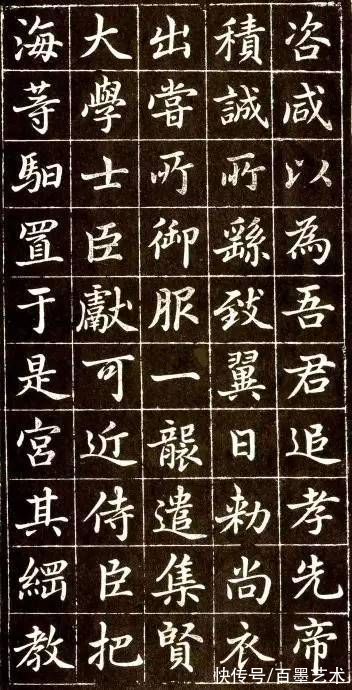 咨咸以為吾君追孝先帝
積誠所繇致翼日勑尚衣
出嘗所御服一襲遣集賢
大學士臣獻可近侍臣把
海䓁馹置于是宮其綱教
快传号/百墨艺术